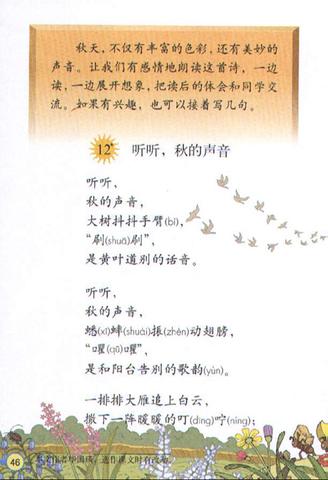 秋天，不仅有丰富的色彩，还有美妙的
声音。让我们有感情地朗读这首诗，一边
读，一边展开想象，把读后的体会和同学交
流。如果有兴趣，也可以接着写几句。
12* 听听，秋的声音
听听，
秋的声音，
大树抖抖手臂(bì)，
“刷(shuā)刷”，
是黄叶道别的话音。
听听，
秋的声音，
蟋(xī)蟀(shuài)振(zhèn)动翅膀，
“㘗(qū)㘗”，
是和阳台告别的歌韵(yùn)。
一排排大雁追上白云，
撒下一阵暖暖的叮(dīng)咛(níng)；
46
本文作者毕国瑛，选作课文时有改动。